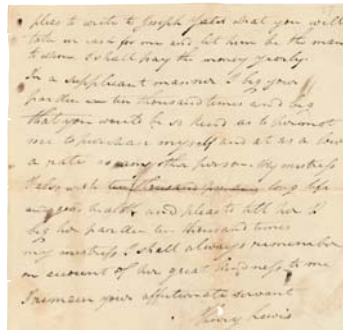 pleas to write to Joseph Yates what you will
take in cash for me and let him be the man
to whom I shall pay the money yearly.
In a suppliant manner I beg your
pardon ten thousand times and beg
that you would be so kind as to permit
me to purchase myself and at as low
a rate as any other person. My mistress
I also wish long life
good health, and pleas to tell her I
beg her pardon ten thousand times
my mistress I shall always remember
on account of her great kindness to me
I remain your affectionate servant
Henry Lewis